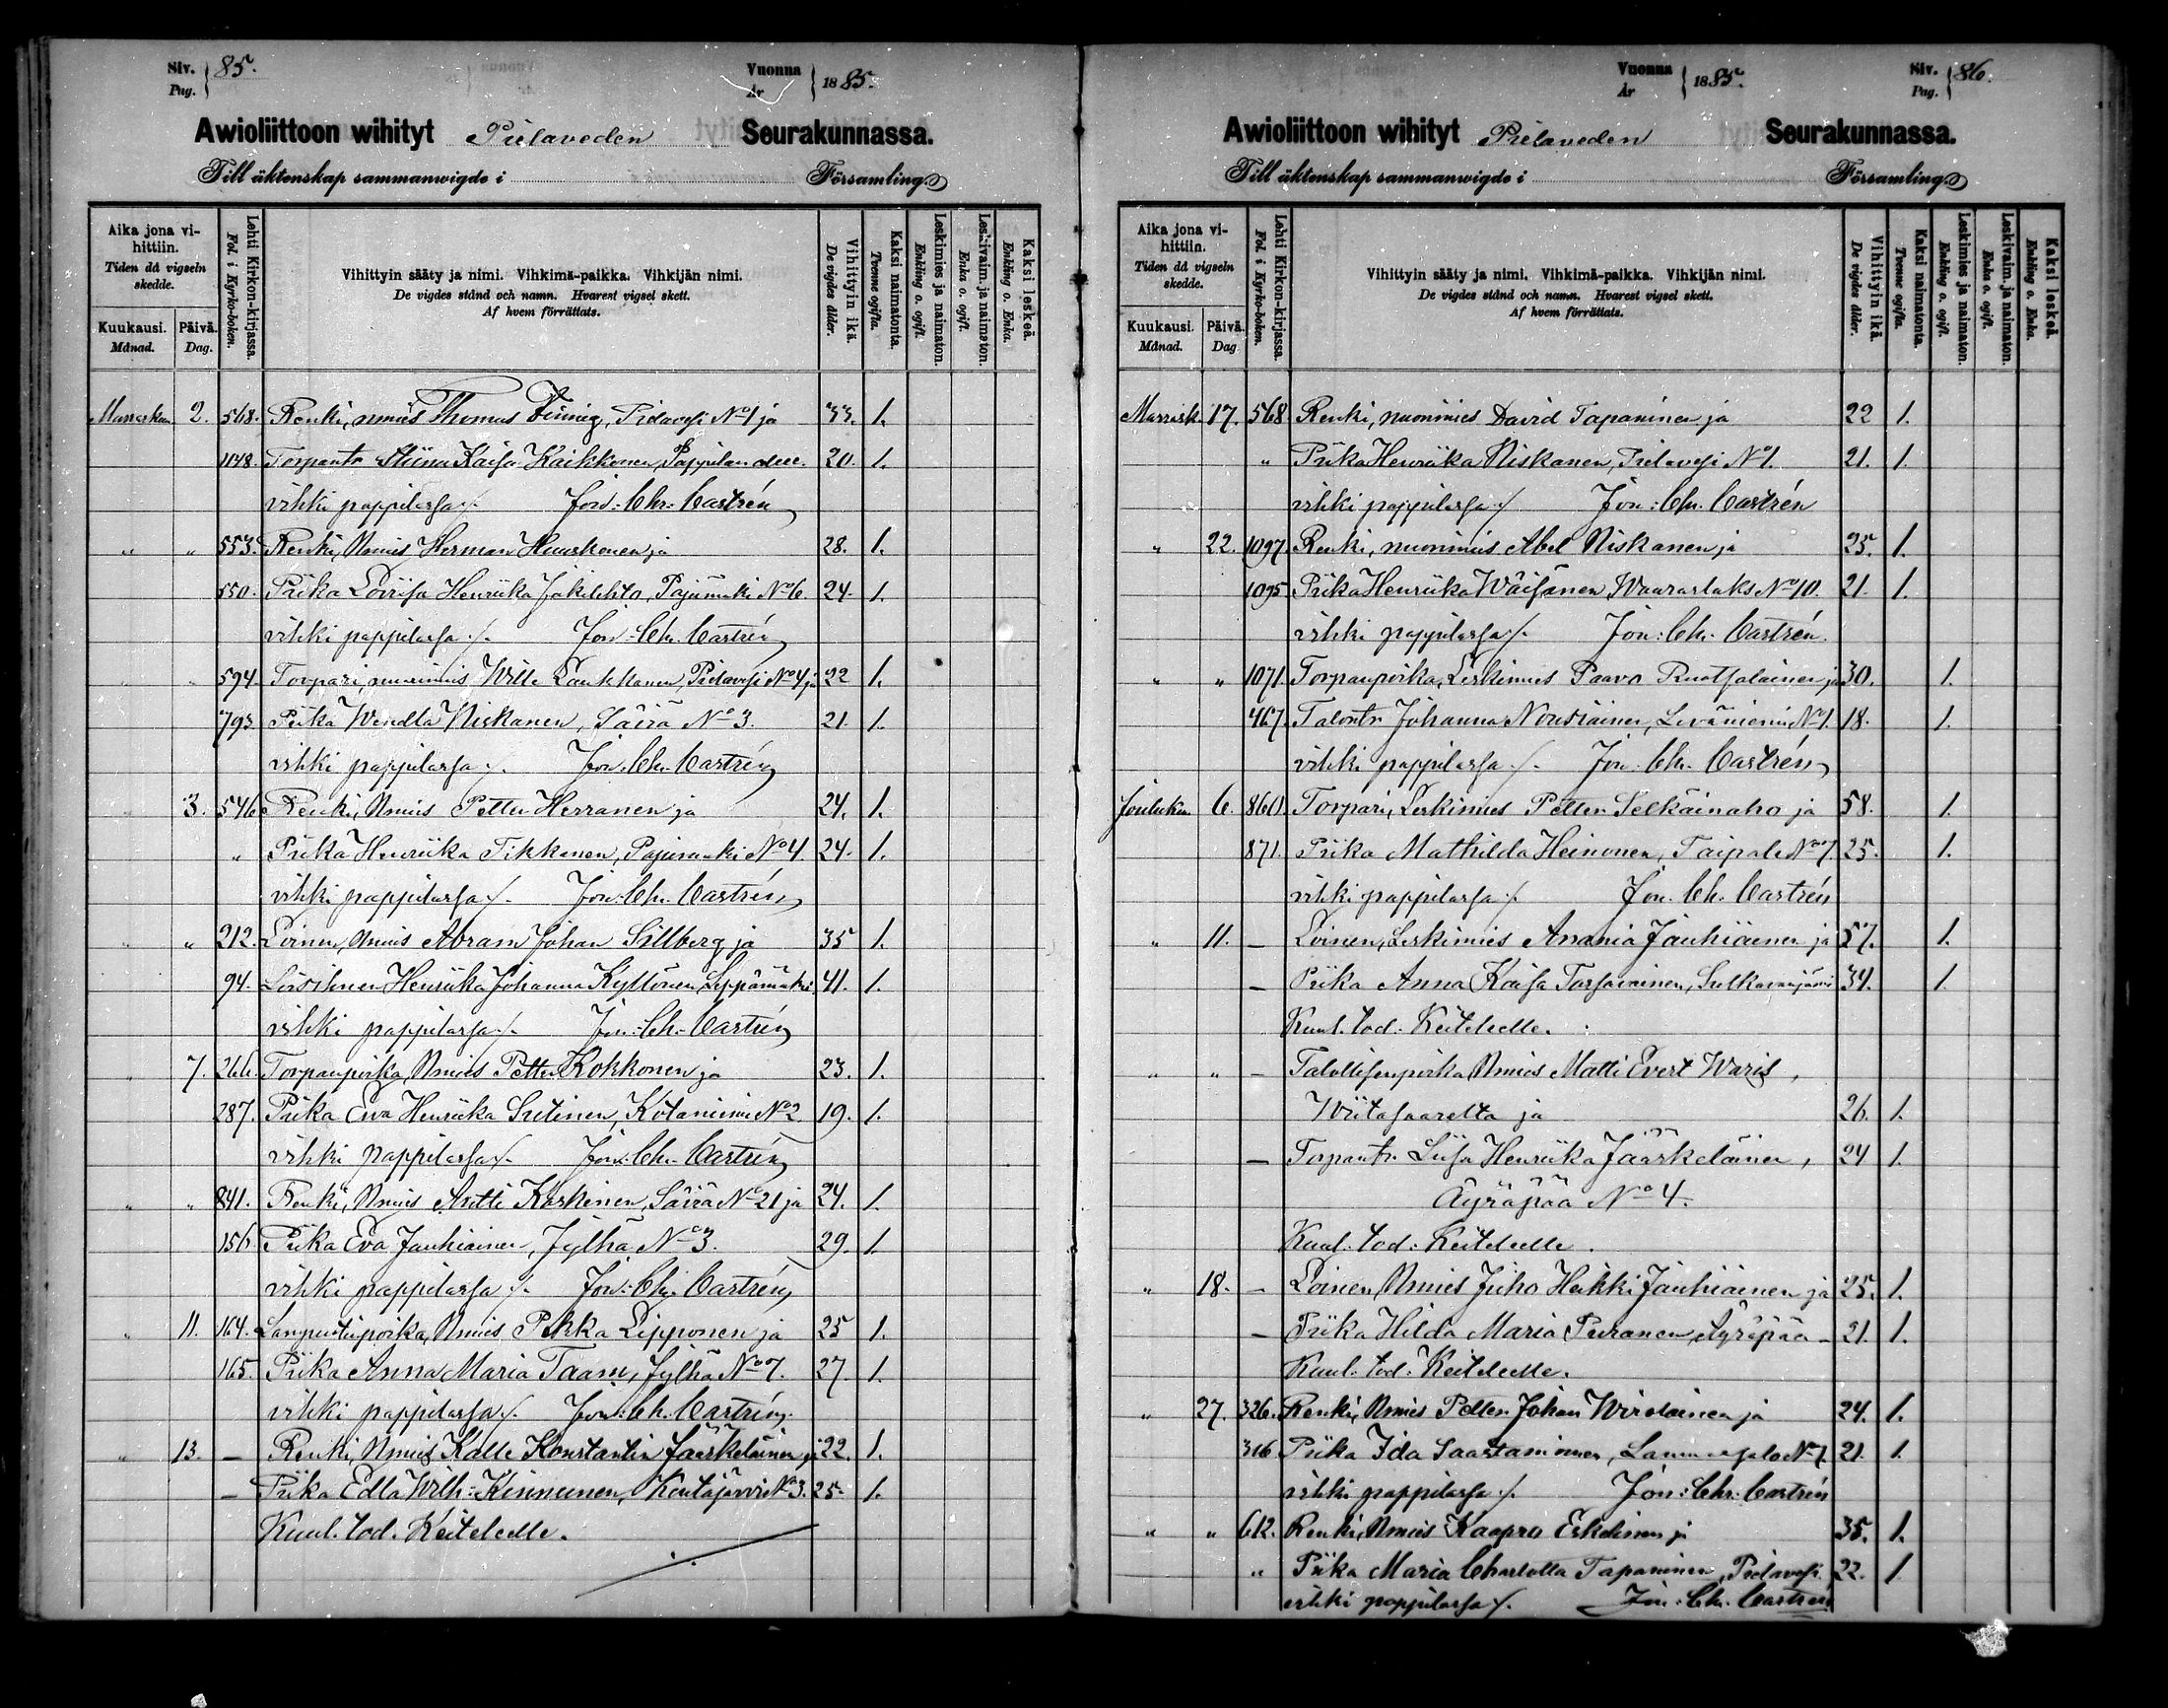 Siv. Pag. 85.
Vuonna År 1885.
Awioliittoon wihityt Pielaveden Seurakunnassa.
Till äktenskap sammanwigde i Församling.
Aika jona vihittiin. Tiden då vigseln skedde.
Kuukausi. Månad.
Päivä. Dag.
Lehti Kirkon-kirjassa. Fol. i Kyrko-boken.
Vihittyin sääty ja nimi. Vihkimä-paikka. Vihkijän nimi.
De vigdes stånd och namn. Hvarest vigsel skett.
Af hvem förrättats.
Vihittyin ikä. De vigdes ålder.
Kaksi naimatonta. Tvenne ogifta.
Leskimies ja naimaton. Enkling o. ogift.
Leskivaim. ja naimaton. Enka o. ogift.
Kaksi leskeä. Enkling o. Enka.
Marraskuu 2. 568. Renki, nmies Thomas Finnig, Pielavesi No 1 ja 33. 1.
1148. Torpantr Stiina Kaisa Kaikkonen, Pappilan 20. 1.
vihki pappilassa ./. Jon: Chr: Castrén
" " 553. Renki, Nmies Herman Huuskonen ja 28. 1.
550. Piika Lovisa Henriika Jökilehto, Pajumäki No 6. 24. 1.
vihki pappilassa ./. Jon: Chr. Castrén
" " 594. Torpari, nuorimies Wille Laukkanen, Pielavesi No 4 ja 22 1.
793. Piika Wendla Niskanen, Säviä No 3. 21. 1.
vihki pappilassa ./. Jon. Chr. Castrén
" 3. 546 Renki, Nmies Petter Herranen ja 24. 1.
" Piika Henriika Tikkanen, Pajumäki No 4. 24. 1.
vihki pappilassa ./. Jon: Chr. Castrén
" " 212. Loinen, Nmies Abram Johan Sillberg ja 35 1.
94. Loisihmen Henriika Johanna Kyllönen, Leppämäki 41. 1.
vihki pappilassa ./. Jon: Chr. Castrén
" 7. 266. Torpanpoika, Nmies Petter Kokkonen ja 23. 1.
287. Piika Eva Henriika Sutinen, Kotaniemi No 2 19. 1.
vihki pappilassa ./. Jon: Chr. Castrén
" " 841. Renki, Nmies Antti Karkinen, Säviä No 21 ja 24. 1.
156. Piika Eva Jauhiainen, Jylhä No 3. 29. 1.
vihki pappilassa ./. Jon: Chr. Castrén
" 11. 164. Lampuotinpoika, Nmies Pekka Lipponen ja 25 1.
165. Piika Anna Maria Taam, Jylhä No 7. 27. 1.
vihki pappilassa ./. Jon: Chr. Castrén
" 13. — Renki, Nmies Kalle Konstantin Jääskeläinen ja 22. 1.
— Piika Edla Wilh: Kinnunen, Koutajärvi No 3. 25. 1.
Kuul. tod. Keiteleelle.
Vuonna År 1885.
Siv. Pag. 86.
Awioliittoon wihityt Pielaveden Seurakunnassa.
Till äktenskap sammanwigde i Församling.
Aika jona vihittiin. Tiden då vigseln skedde.
Kuukausi. Månad.
Päivä. Dag
Lehti Kirkon-kirjassa. Fol. i Kyrko-boken.
Vihittyin sääty ja nimi. Vihkimä-paikka. Vihkijän nimi.
De vigdes stånd och namn. Hvarest vigsel skett.
Af hvem förrättats.
Vihittyin ikä. De vigdes ålder.
Kaksi naimatonta. Tvenne ogifta.
Leskimies ja naimaton. Enkling o. ogift.
Leskivaim. ja naimaton. Enka o. ogift.
Kaksi leskeä. Enkling o. Enka.
Marrask. 17. 568. Renki, nuorimies David Tapaninen ja 22 1.
" Piika Henriika Niskanen, Pielavesi No 1. 21. 1.
vihki pappilassa ./. Jon: Chr. Castrén
" 22. 1097. Renki, nuorimies Abel Niskanen ja 25. 1.
1095 Piika Henriika Wäisänen Waaraslaks No 10. 21. 1.
vihki pappilassa ./. Jon: Chr. Castrén.
" " 1071. Torpanpoika, Leskimies Paavo Ruotsalainen ja 30. 1.
467. Talontr. Johanna Nousiainen, Leväniemi No 1. 18. 1.
vihki pappilassa ./. Jon. Chr. Castrén
Jouluku. 6. 860. Torpari, Leskimies Petter Selkäinaho ja 58. 1.
871. Piika Mathilda Heinonen, Taipale No 7. 25. 1.
vihki pappilassa ./. Jon. Chr. Castrén
" 11. — Loinen, Leskimies Anania Jauhiainen ja 57. 1.
— Piika Anna Kaisa Tarvainen, Sulkavanjärvi 34. 1.
Kuul. tod. Keiteleelle.
" " — Talollisenpoika, Nmies Matti Evert Waris,
Wiitasaarelta ja 26. 1.
— Torpantr. Liisa Henriika Jääskeläinen, 24 1.
Äyräpää No 4.
Kuul. tod: Keiteleelle.
" 18. — Loinen, Nmies Juho Heikki Jauhiainen ja 25. 1.
— Piika Hilda Maria Puranen, Äyräpää — 21. 1.
Kuul. tod: Keiteleelle.
" 27. 326. Renki, Nmies Petter Johan Wirolainen ja 24. 1.
316 Piika Ida Saastamoinen, Lammassalo No 7. 21. 1.
vihki pappilassa ./. Jon: Chr. Castrén
" " 612. Renki, Nmies Kaapro Eskelinen ja 35. 1.
" Piika Maria Charlotta Tapaninen, Pielavesi 22. 1
vihki pappilassa ./. Jon: Chr. Castrén